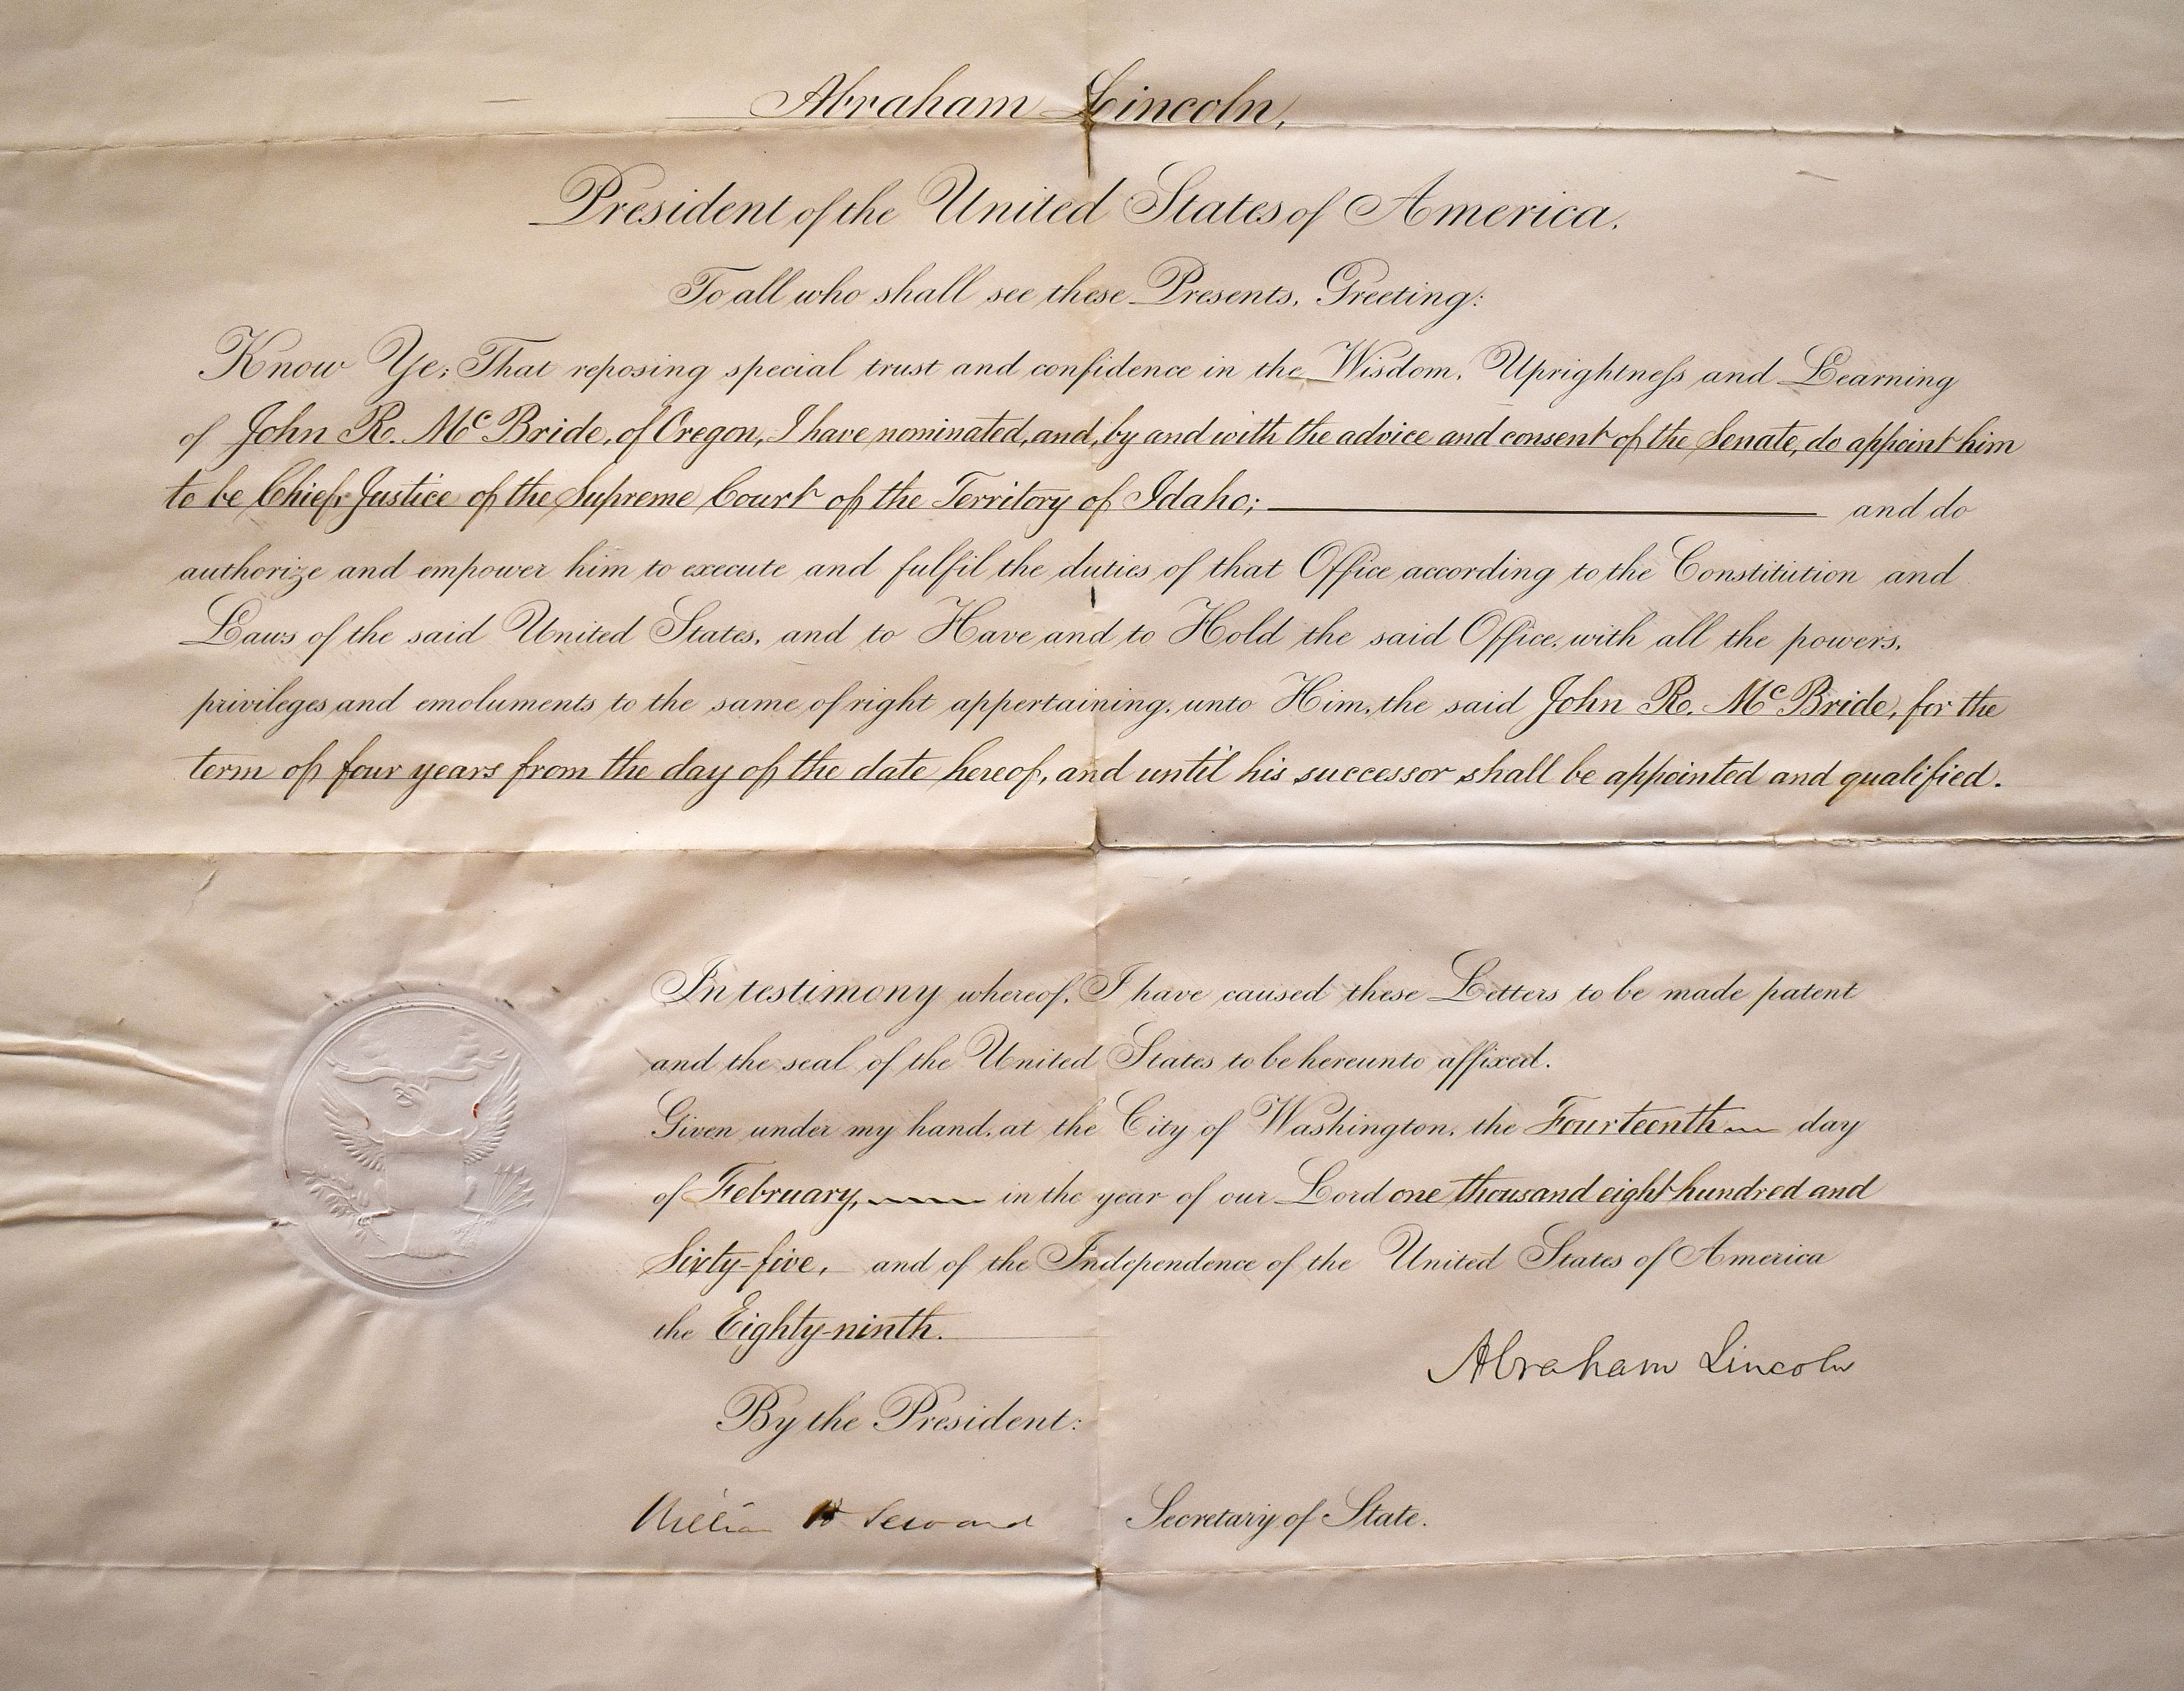 Abraham Lincoln,
President of the United States of America.
To all who shall see these Presents, Greeting:
Know Ye; That reposing special trust and confidence in the Wisdom, Uprightneſs and Learning
of John R. McBride, of Oregon, I have nominated, and, by and with the advice and consent of the Senate, do appoint him
to be Chief Justice of the Supreme Court of the Territory of Idaho; and do
authorize and empower him to execute and fulfil the duties of that Office according to the Constitution and
Laws of the said United States, and to Have and to Hold the said Office, with all the powers,
privileges and emoluments to the same of right appertaining, unto Him, the said John R. McBride, for the
term of four years from the day of the date hereof, and until his successor shall be appointed and qualified.
In testimony whereof, I have caused these Letters to be made patent
and the seal of the United States to be hereunto affixed.
Given under my hand, at the City of Washington, the Fourteenth day
of February, in the year of our Lord one thousand eight hundred and
Sixty-five, and of the Independence of the United States of America
the Eighty-ninth.
Abraham Lincoln
By the President:
William H Seward Secretary of State.